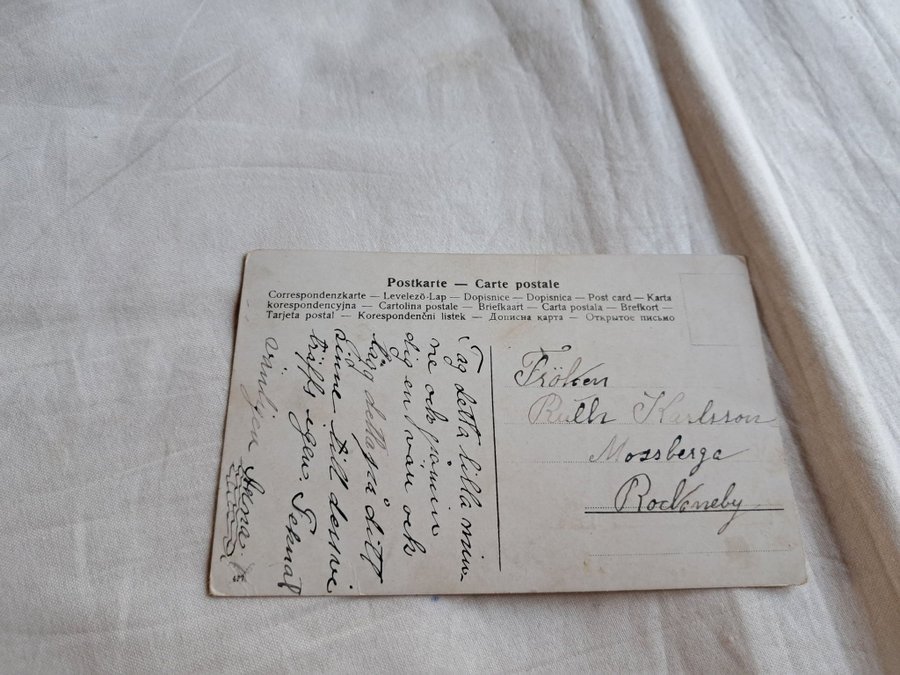 Postkarte — Carte postale
Correspondenzkarte — Levelezö-Lap — Dopisnice — Dopisnica — Post card — Karta
korespondencyjna — Cartolina postale — Briefkaart — Carta postala — Brefkort —
Tarjeta postal — Korespondenčni listek — Дописна карта — Открытое письмо
Tag detta lilla min-
ne och göm in
dig en vän och
lägg detta på ditt
sinne till dess vi
träffs igen.
vänligen Anna
Fröken
Ruth Karlsson
Mossberga
Rockneby